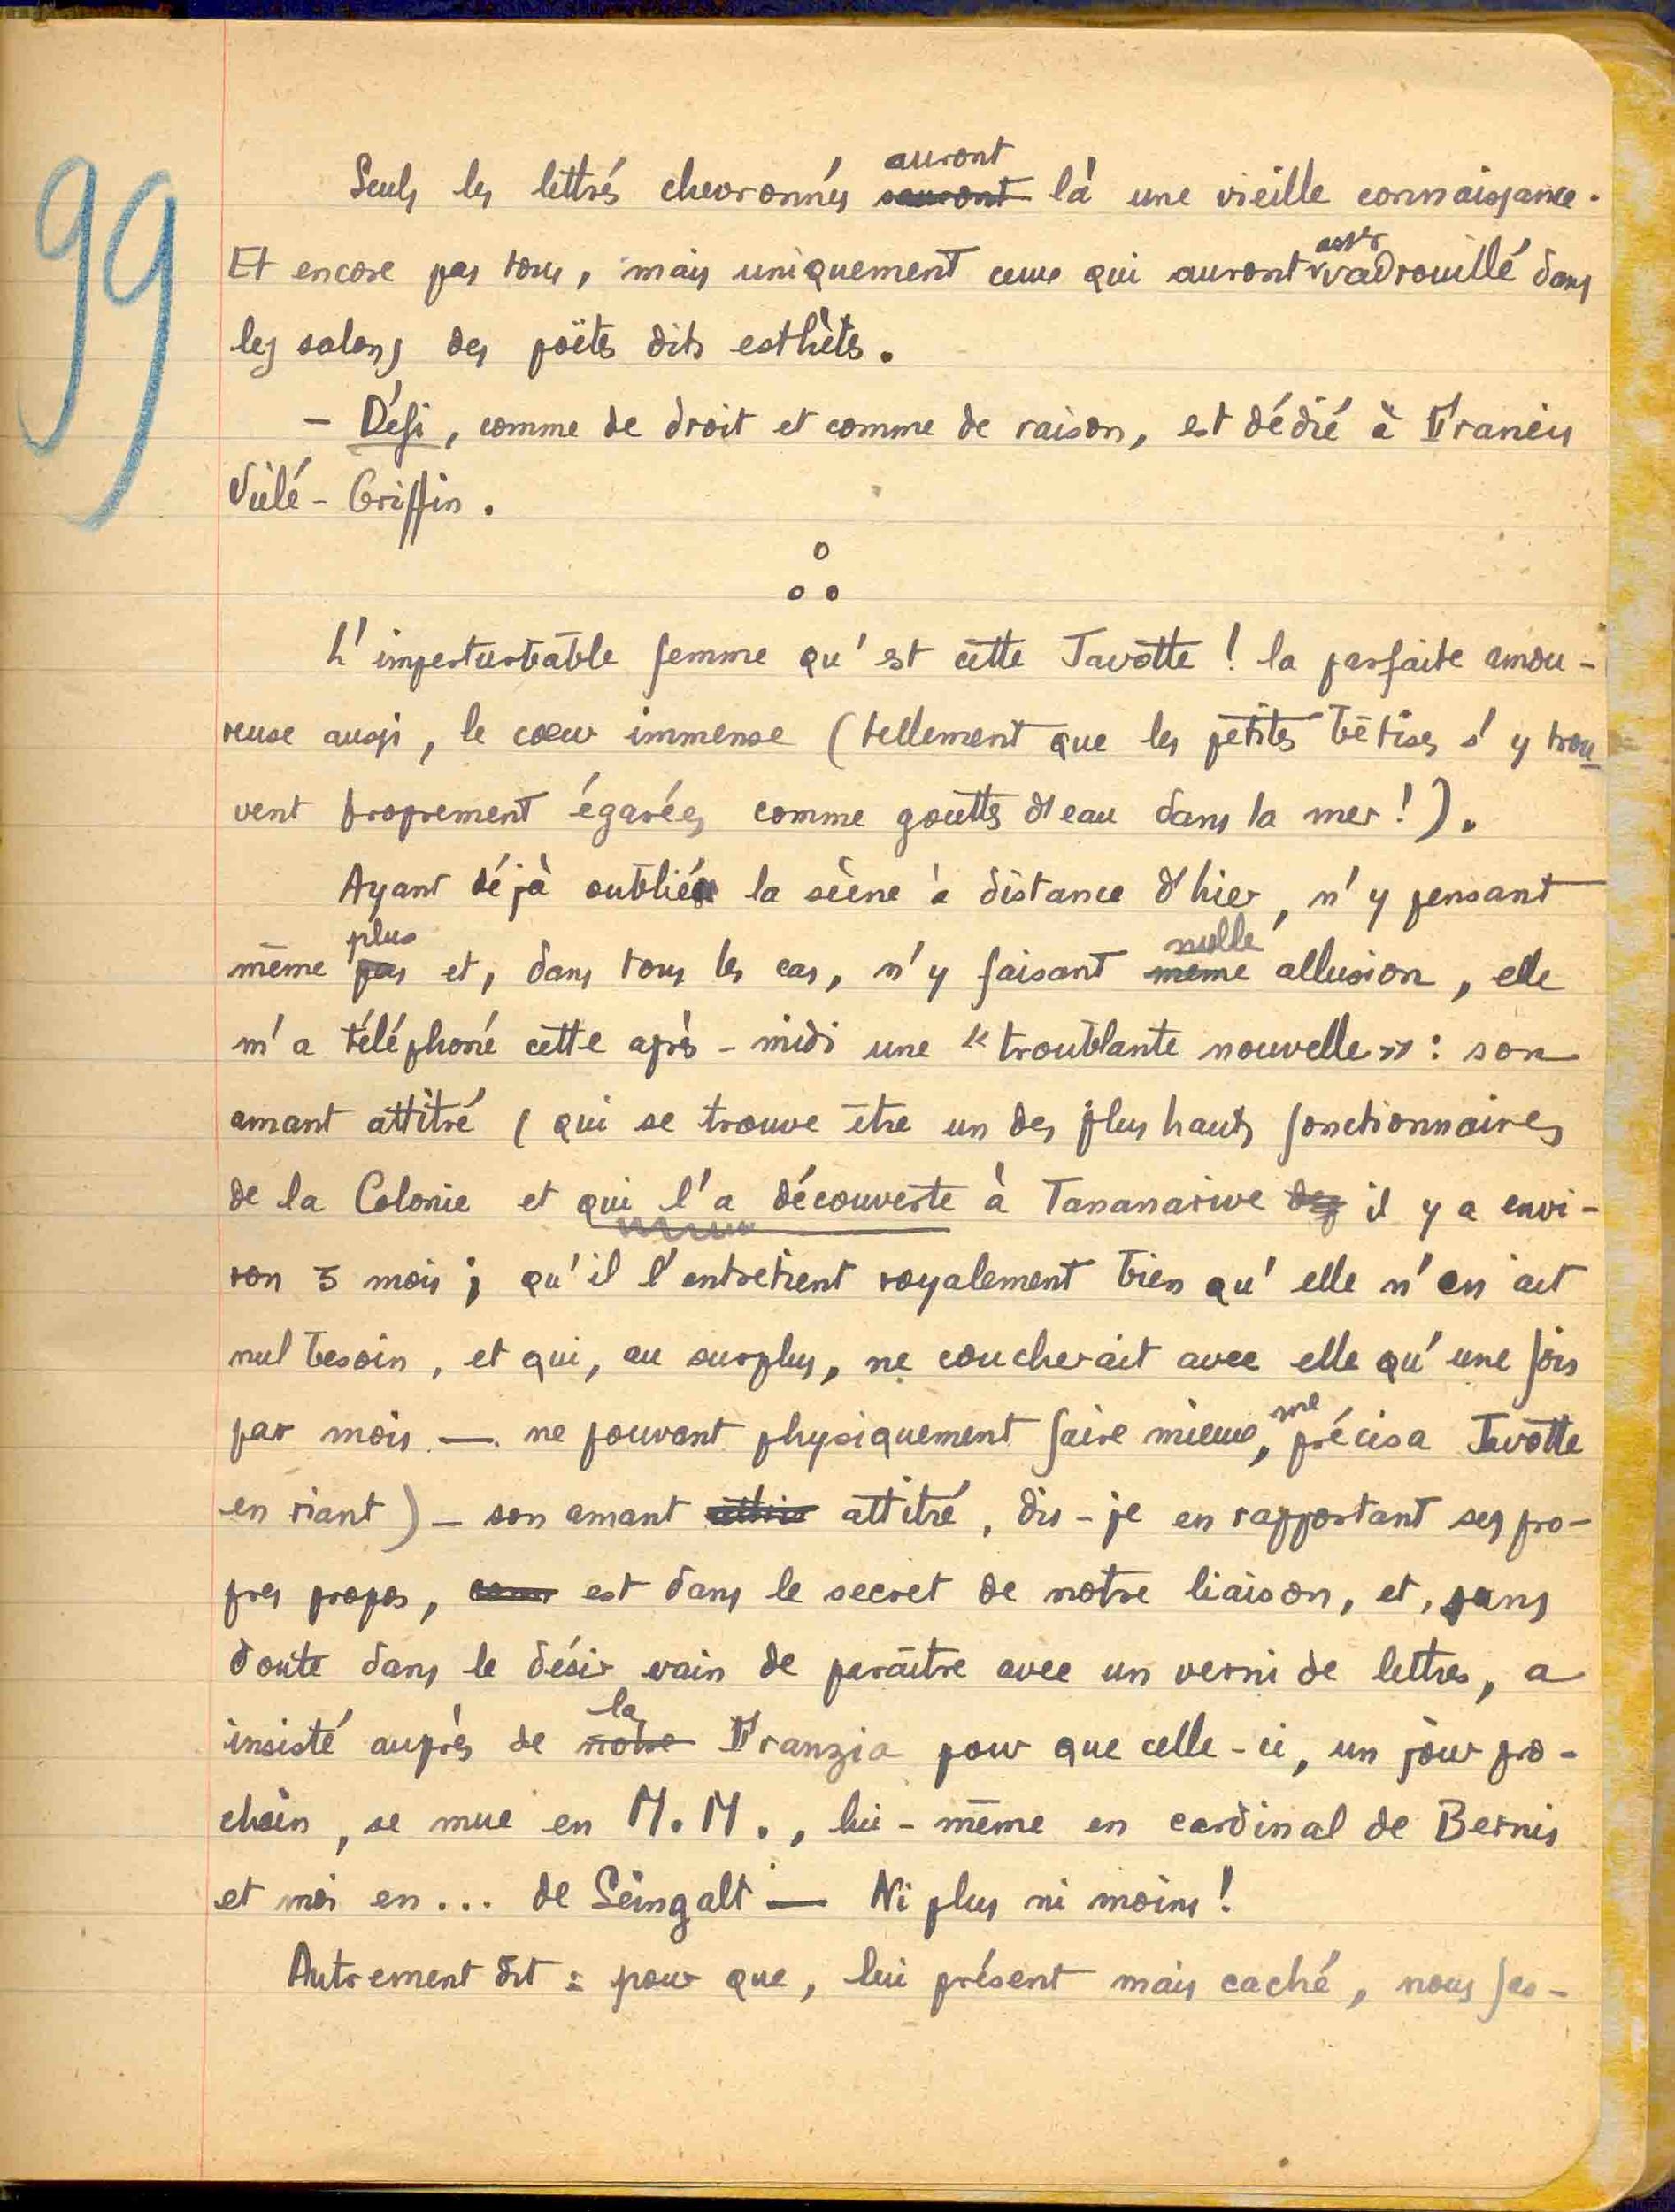 99
Seuls les lettrés chevronnés sauront auront là une vieille connaissance.
Et encore pas tous, mais uniquement ceux qui auront assez vadrouillé dans
les salons des poëtes dits esthètes.
– Défi, comme de droit et comme de raison, est dédié à Francis
Vielé-Griffin.
L'imperturbable femme qu'est cette Javotte ! la parfaite amou-
reuse aussi, le cœur immense (tellement que les petites bêtises s'y trou-
vent proprement égarées comme gouttes d'eau dans la mer !).
Ayant déjà oublié la scène à distance d'hier, n'y pensant
même pas plus et, dans tous les cas, n'y faisant même nulle allusion, elle
m'a téléphoné cette après-midi une « troublante nouvelle » : son
amant attitré (qui se trouve être un des plus hauts fonctionnaires
de la Colonie et qui l'a découverte à Tananarive des il y a envi-
ron 5 mois ; qu'il l'entretient royalement bien qu'elle n'en ait
nul besoin, et qui, au surplus, ne coucherait avec elle qu'une fois
par mois — ne pouvant physiquement faire mieux, me précisa Javotte
en riant) – son amant attitré, dis-je en rapportant ses pro-
pres propos, est dans le secret de notre liaison, et, sans
doute dans le désir vain de paraître avec un verni de lettres, a
insisté auprès de notre la Franzia pour que celle-ci, un jour pro-
chain, se mue en M.M., lui-même en cardinal de Bernis
et moi en... de Seingalt — Ni plus ni moins !
Autrement dit : pour que, lui présent mais caché, nous fas-